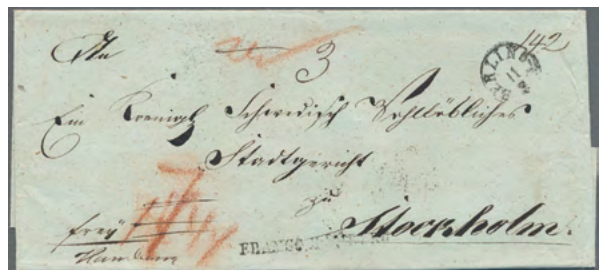 An
3
142
BERLIN
11
Ein Koenigl Schwedisch Wohllöbliches
Stadtgericht
zu
Stockholm.
frey
Hamburg